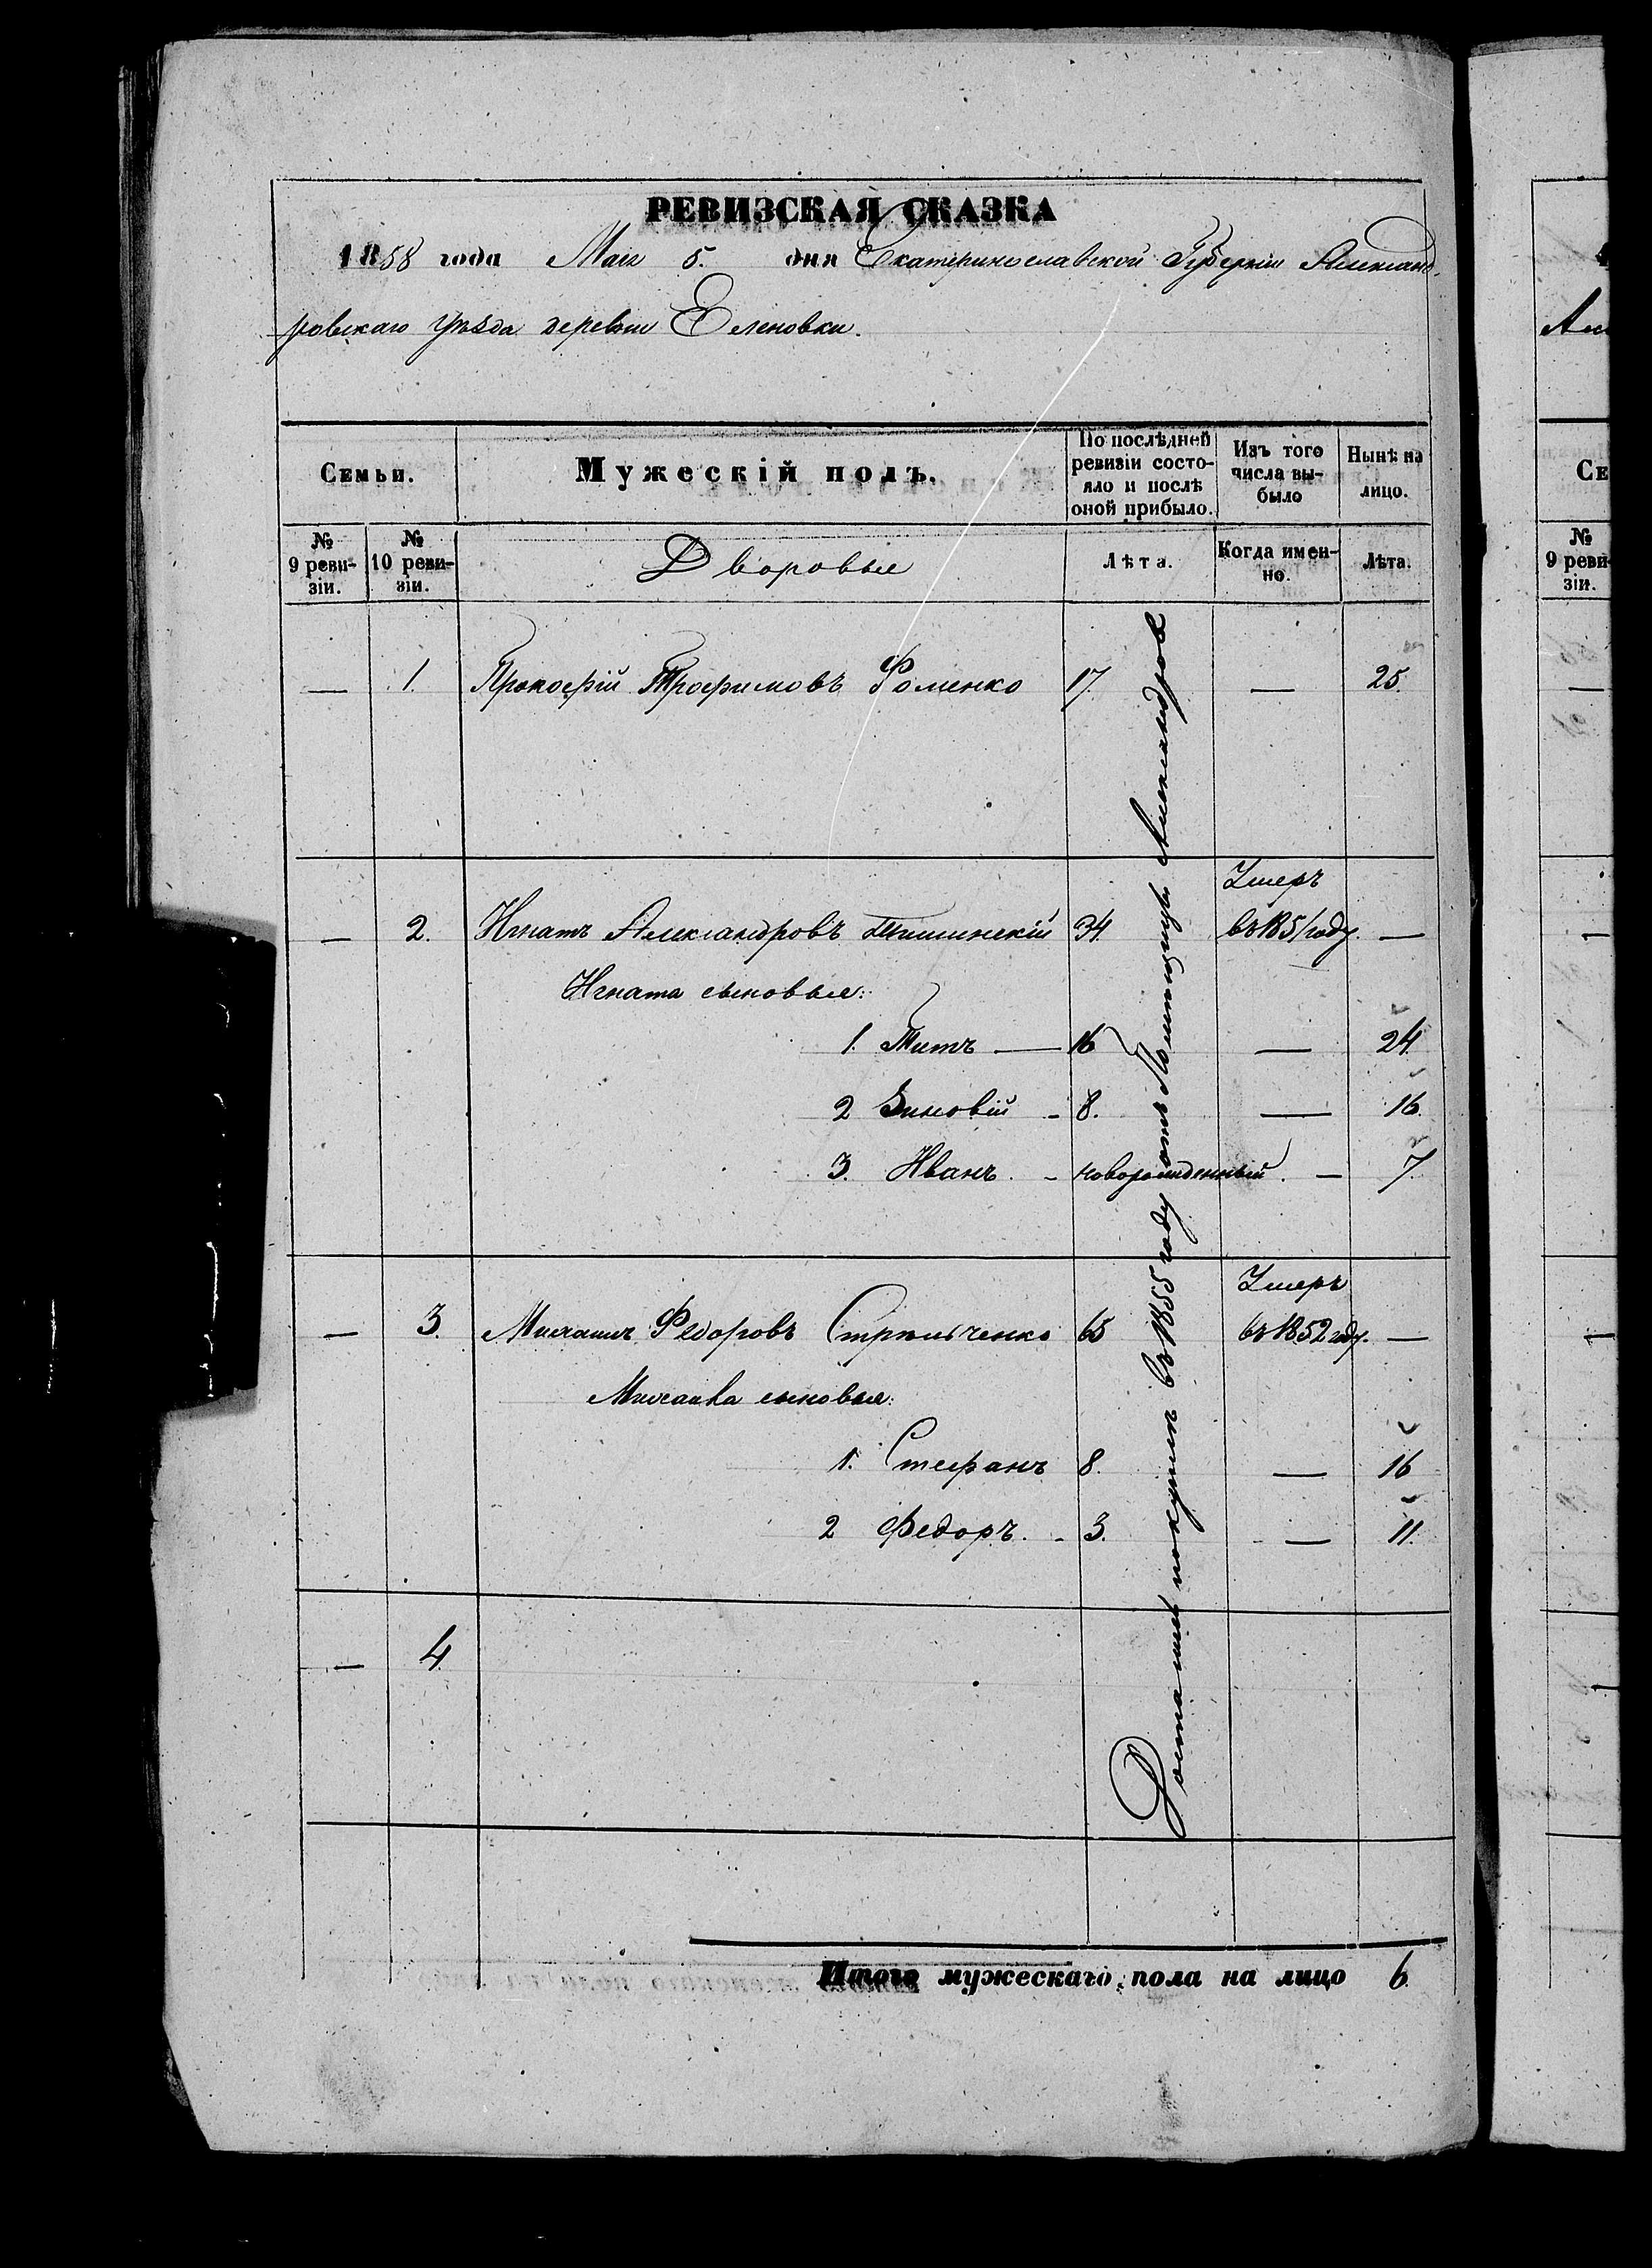 РЕВИЗСКАЯ СКАЗКА
1858 года Мая 5. дня Екатеринославской Губерніи Александ-
ровскаго уѣзда деревни Еленовки.
Семьи. Мужескій полъ. По послѣдней ревизіи состо-яло и послѣ оной прибыло. Изъ того числа вы-было Нынѣ на лицо.
№ 9 реви-зіи. № 10 реви-зіи. Дворовые Лѣта. Когда имен-но. Лѣта.
— 1. Прокофій Трофимовъ Фоменко 17. — 25.
Умеръ
— 2. Игнатъ Александровъ Тишинскій 34. въ 1851 году. —
Игната сыновья:
1. Титъ — 16 — 24.
2 Зиновій - 8. — 16.
3. Иванъ. - новорожденный. — 7.
Умеръ
— 3. Михаилъ Федоровъ Стрельченко 65 въ 1852 году. —
Михаила сыновья:
1. Стефанъ 8. — 16
2 Федоръ. - 3. — 11.
— 4.
Достались покупкъ въ 1855 году отъ Помещицы Александров
Итого мужескаго пола на лицо 6.
Але
Се
№ 9 реви-зіи.